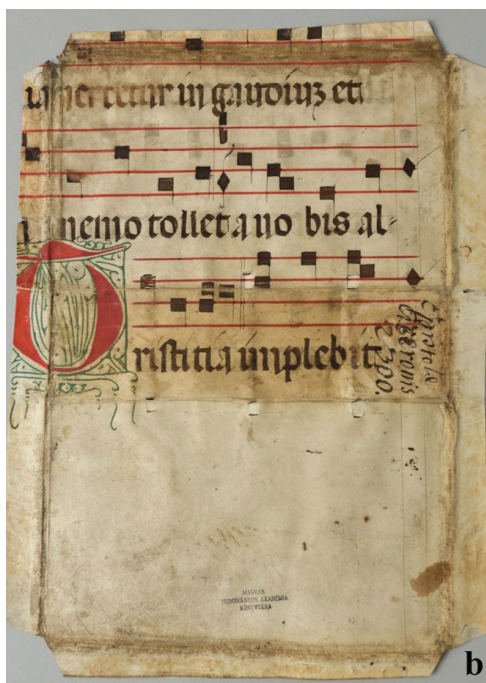 uertetur in gaudiuz et
nemo tollet a uo bis al-
Tristitia inplebit
Ciceronis
MAGYAR
TUDOMÁNYOS AKADÉMIA
KÖNYVTÁRA
b